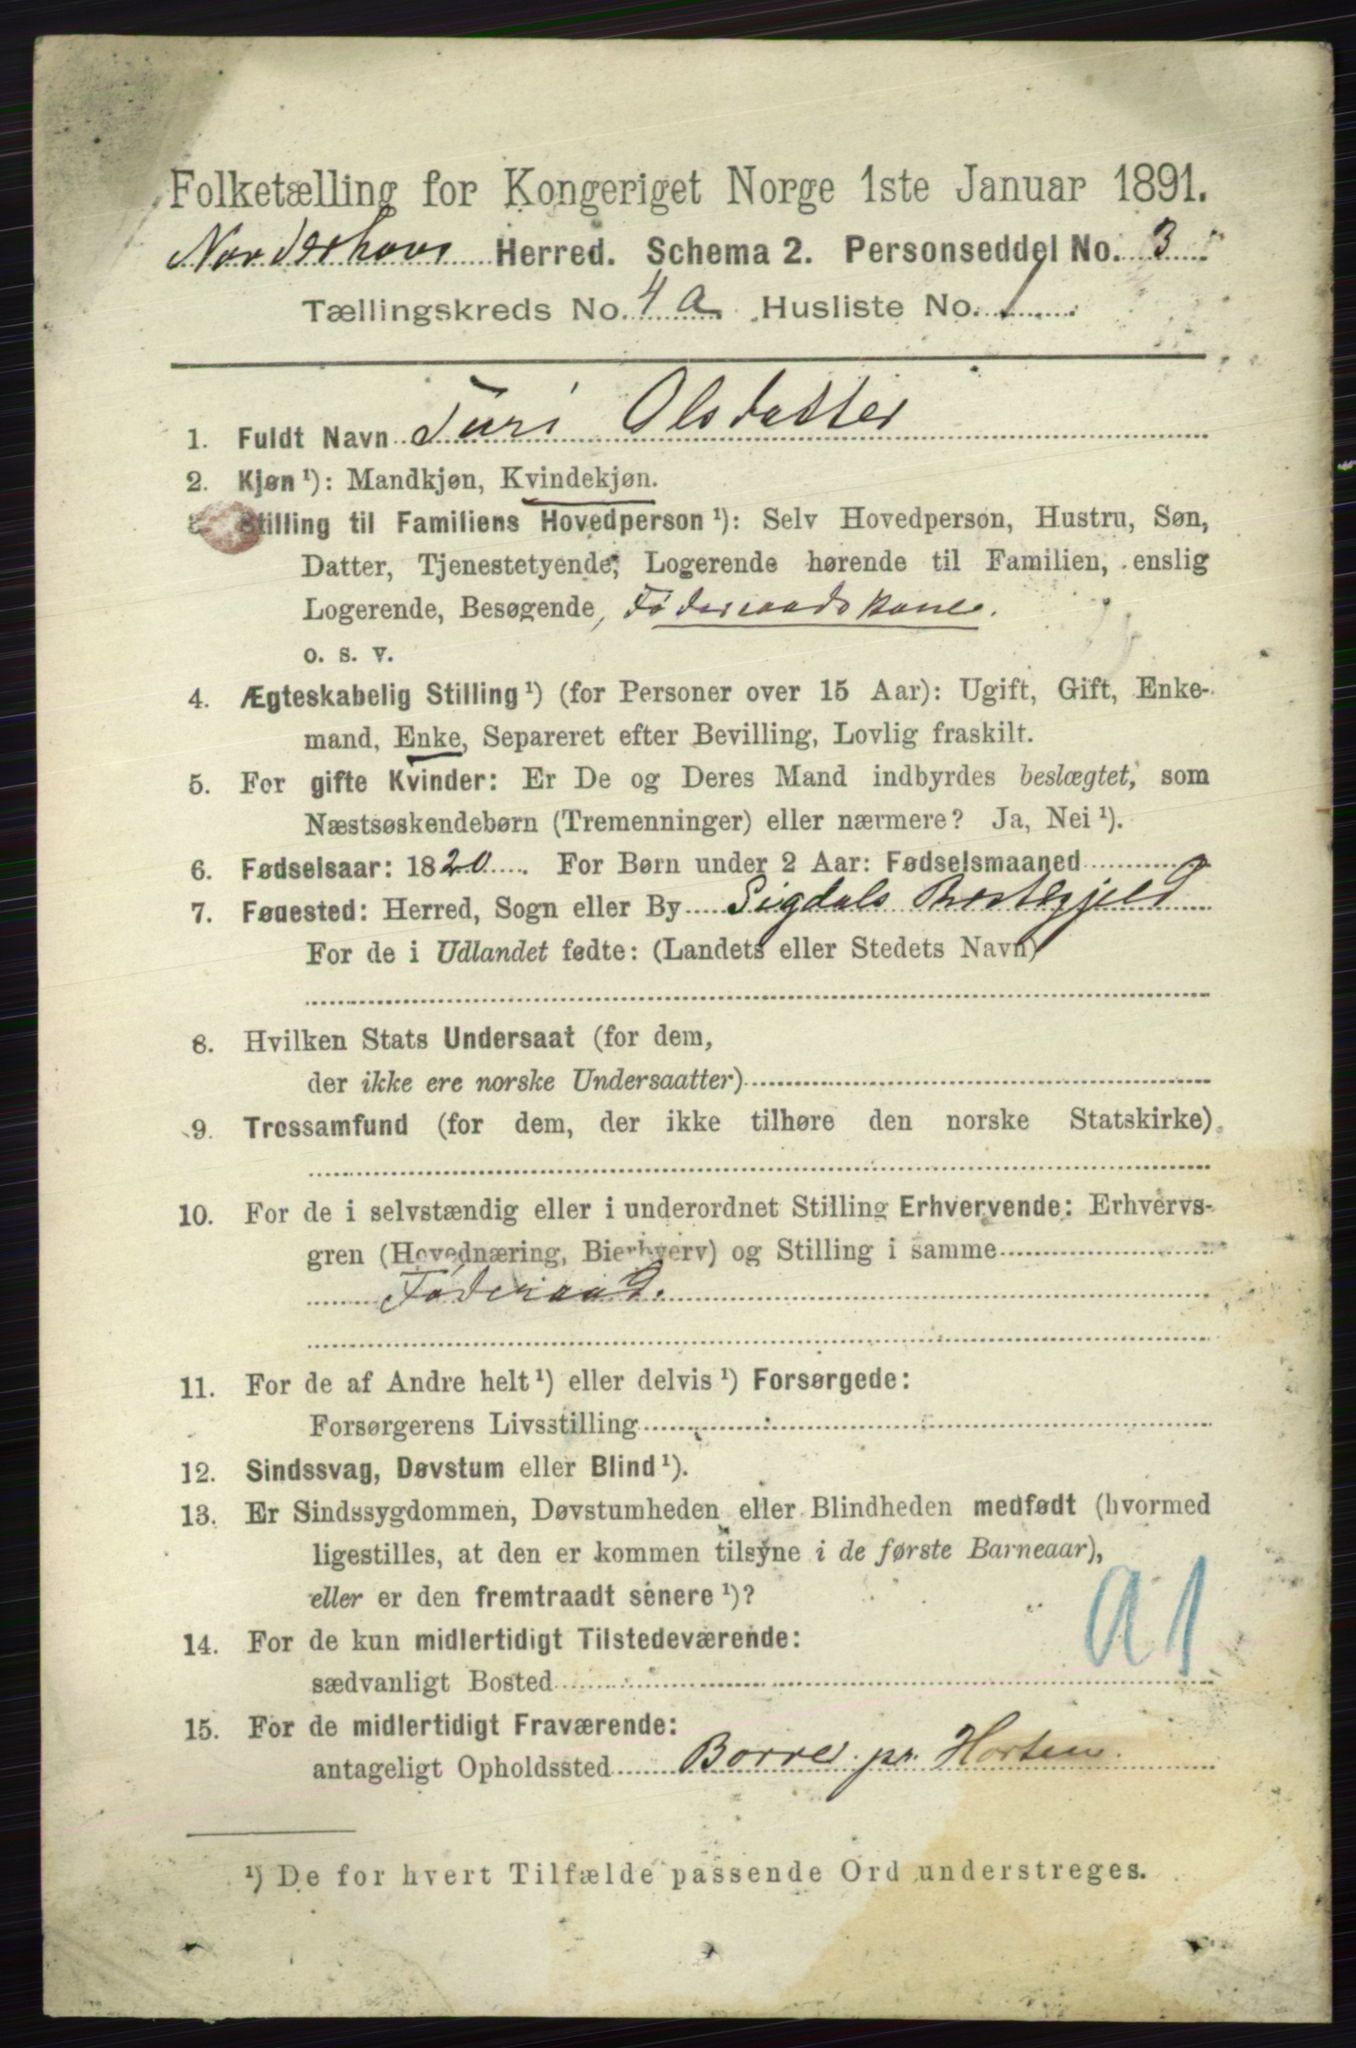 Folketælling for Kongeriget Norge 1ste Januar 1891.
Norderhovs Herred. Schema 2. Personseddel No. 3
Tællingskreds No. 4 a. Husliste No. 1
1. Fuldt Navn Turi Olsdatter
2. Kjøn ¹): Mandkjøn, Kvindekjøn.
Stilling til Familiens Hovedperson ¹): Selv Hovedperson, Hustru, Søn,
Datter, Tjenestetyende, Logerende hørende til Familien, enslig
Logerende, Besøgende, Føderaadskone.
o. s. v.
4. Ægteskabelig Stilling ¹) (for Personer over 15 Aar): Ugift, Gift, Enke-
mand, Enke, Separeret efter Bevilling, Lovlig fraskilt.
5. For gifte Kvinder: Er De og Deres Mand indbyrdes beslægtet, som
Næstsøskendebørn (Tremenninger) eller nærmere? Ja, Nei ¹).
6. Fødselsaar: 1820. For Børn under 2 Aar: Fødselsmaaned
7. Fødested: Herred, Sogn eller By Sigdals Prestegjeld
For de i Udlandet fødte: (Landets eller Stedets Navn)
8. Hvilken Stats Undersaat (for dem,
der ikke ere norske Undersaatter)
9. Trossamfund (for dem, der ikke tilhøre den norske Statskirke)
10. For de i selvstændig eller i underordnet Stilling Erhvervende: Erhvervs-
gren (Hovednæring, Bierhverv) og Stilling i samme
Føderaad.
11. For de af Andre helt ¹) eller delvis ¹) Forsørgede:
Forsørgerens Livsstilling
12. Sindssvag, Døvstum eller Blind ¹).
13. Er Sindssygdommen, Døvstumheden eller Blindheden medfødt (hvormed
ligestilles, at den er kommen tilsyne i de første Barneaar),
eller er den fremtraadt senere ¹)?
a1
14. For de kun midlertidigt Tilstedeværende:
sædvanligt Bosted
15. For de midlertidigt Fraværende:
antageligt Opholdssted Borre pr. Horten.
¹) De for hvert Tilfælde passende Ord understreges.